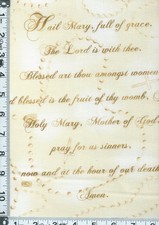 Hail Mary, full of grace.
The Lord is with thee.
Blessed are thou amongst women
d blessed is the fruit of thy womb,
Holy Mary, Mother of God,
pray for us sinners,
now and at the hour of our death
Amen.